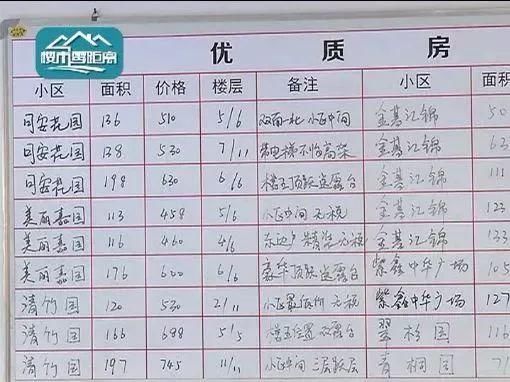 楼市零距离
优 质 房
小区 面积 价格 楼层 备注 小区 面积
同安花园 136 510 5/6 双南一北 小区中间 金碁江锦 50
同安花园 138 530 7/11 带电梯不怕高 金碁江锦 63
同安花园 198 630 6/6 楼王顶跃 露台 金碁江锦 111
美丽嘉园 113 458 5/6 小区中间 无税 金碁江锦 123
美丽嘉园 116 460 4/6 东边户 精装 无税 金碁江锦 133
美丽嘉园 176 600 6/6 豪华顶跃 露台 紫鑫中华广场 105
清竹园 120 530 2/11 小区 无税 紫鑫中华广场 127
清竹园 166 688 5/5 楼王位置 露台 翠杉园 116
清竹园 197 745 11/11 小区中间 三层跃层 青桐园